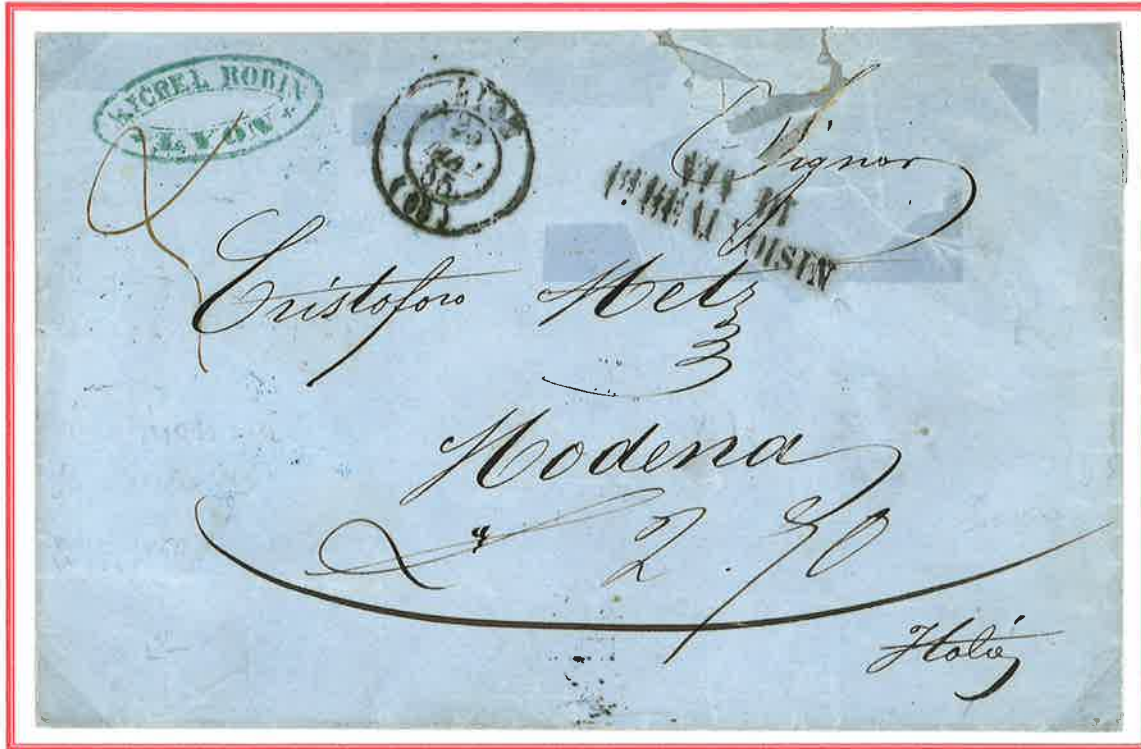 MICHEL ROBIN
LYON
LYON
55
(68)
VIA DI
PT BEAUVOISIN
Signor
Cristoforo Metz
Modena
2.70
Italie